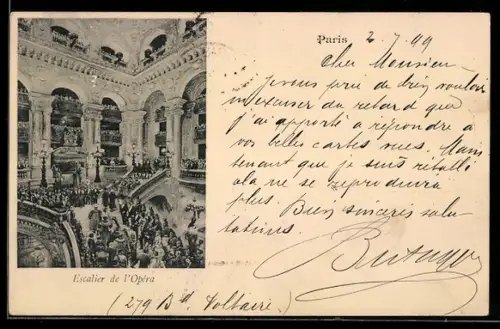 Paris 2_7_99
Cher Monsieur
Je vous prie de bien vouloir
m'excuser du retard que
j'ai apporté à répondre à
vos belles cartes vues. Main
tenant que je suis rétabli
cela ne se reproduira
plus. Bien sincères salu
tations.
Escalier de l'Opéra
(279 Bd Voltaire)